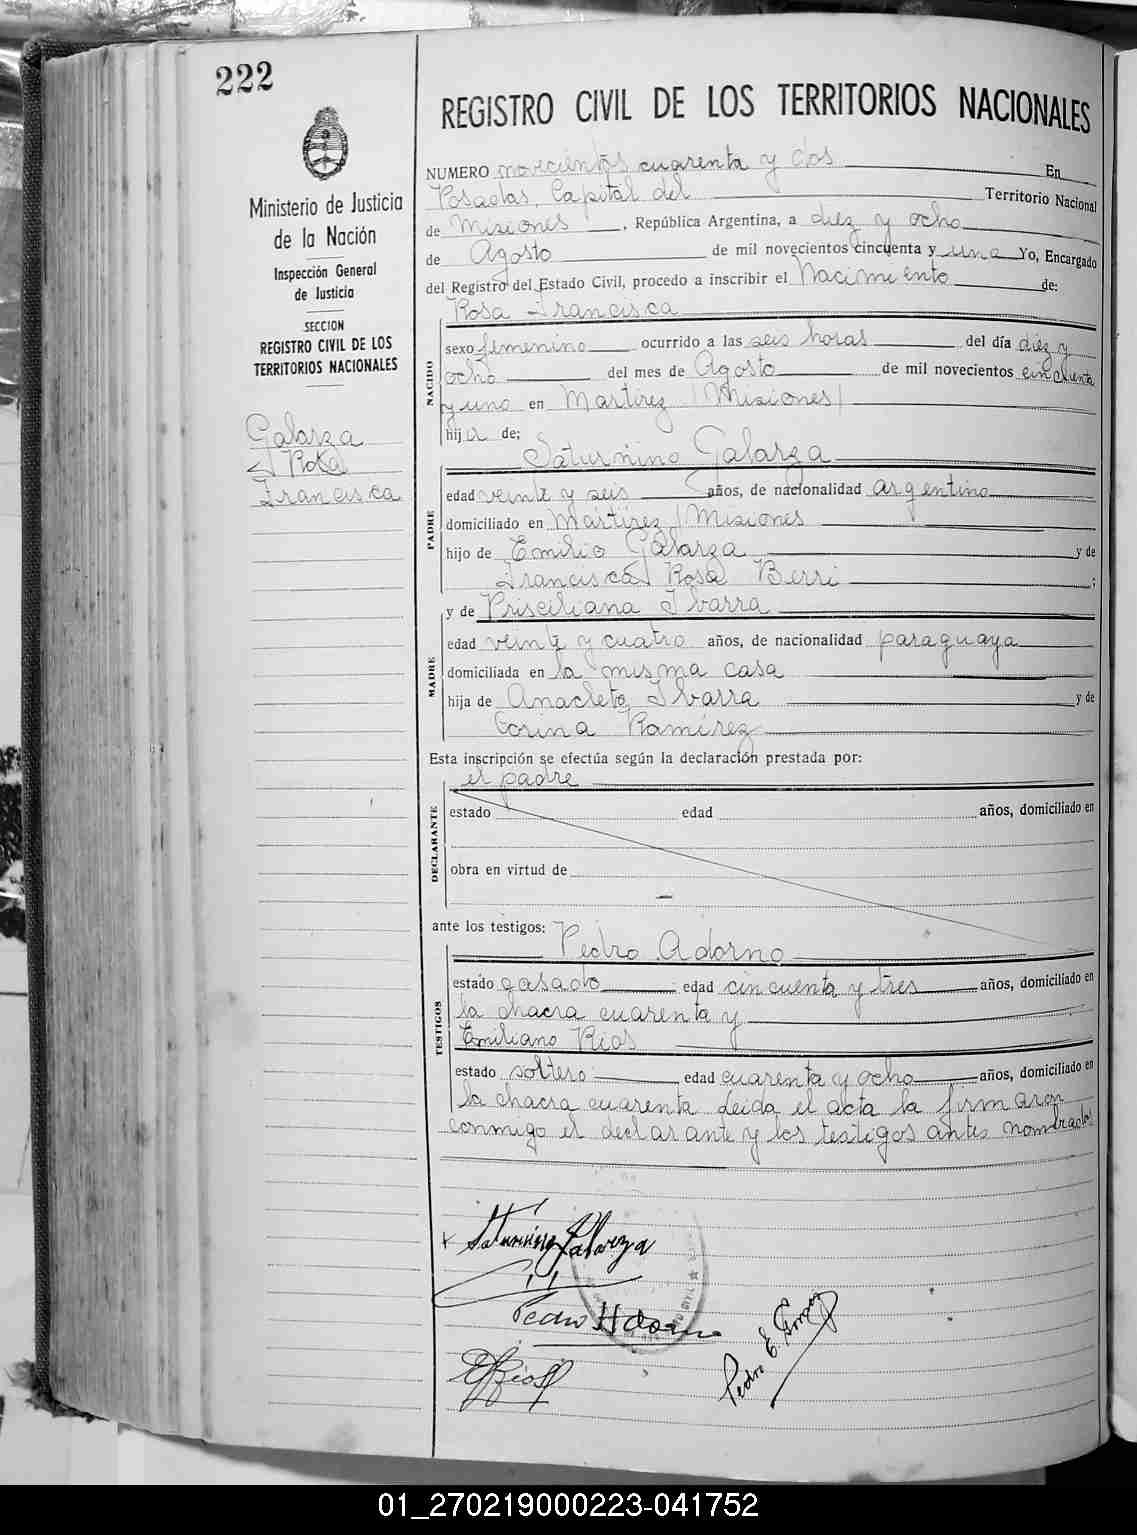 222
Ministerio de Justicia
de la Nación
Inspección General
de Justicia
SECCION
REGISTRO CIVIL DE LOS
TERRITORIOS NACIONALES
Galarza
Rosa
Francisca
REGISTRO CIVIL DE LOS TERRITORIOS NACIONALES
NUMERO novecientos cuarenta y dos En
Posadas, Capital del Territorio Nacional
de Misiones, República Argentina, a diez y ocho
de Agosto de mil novecientos cincuenta y uno Yo, Encargado
del Registro del Estado Civil, procedo a inscribir el Nacimiento de:
Rosa Francisca
NACIDO
sexo femenino ocurrido a las seis horas del día diez y
ocho del mes de Agosto de mil novecientos cincuenta
y uno en Martirez (Misiones)
hija de:
Saturnino Galarza
PADRE
edad veinte y seis años, de nacionalidad argentino
domiciliado en Martirez (Misiones
hijo de Emilio Galarza y de
Francisca Rosa Berri;
y de Prisciliana Ibarra
MADRE
edad veinte y cuatro años, de nacionalidad paraguaya
domiciliada en la misma casa
hija de Anacleto Ibarra y de
Corina Ramírez
Esta inscripción se efectúa según la declaración prestada por:
el padre
DECLARANTE
estado edad años, domiciliado en
obra en virtud de
ante los testigos:
Pedro Adorno
TESTIGOS
estado casado edad cincuenta y tres años, domiciliado en
la chacra cuarenta y
Emiliano Rios
estado soltero edad cuarenta y ocho años, domiciliado en
la chacra cuarenta Leida el acta la firmaron
conmigo el declarante y los testigos antes nombrados
Saturnino Galarza
Pedro Adorno
ERios
Pedro E.
01_270219000223-041752